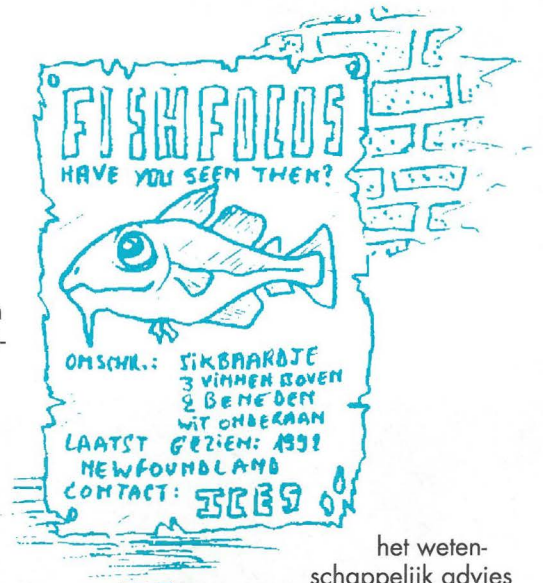 FISHFOCUS
HAVE YOU SEEN THEM?
OMSCHR.: SIKBAARDJE
3 VINNEN BOVEN
2 BENEDEN
WIT ONDERAAN
LAATST GEZIEN: 1992
NEWFOUNDLAND
CONTACT: ICES
het weten-
schappelijk advies